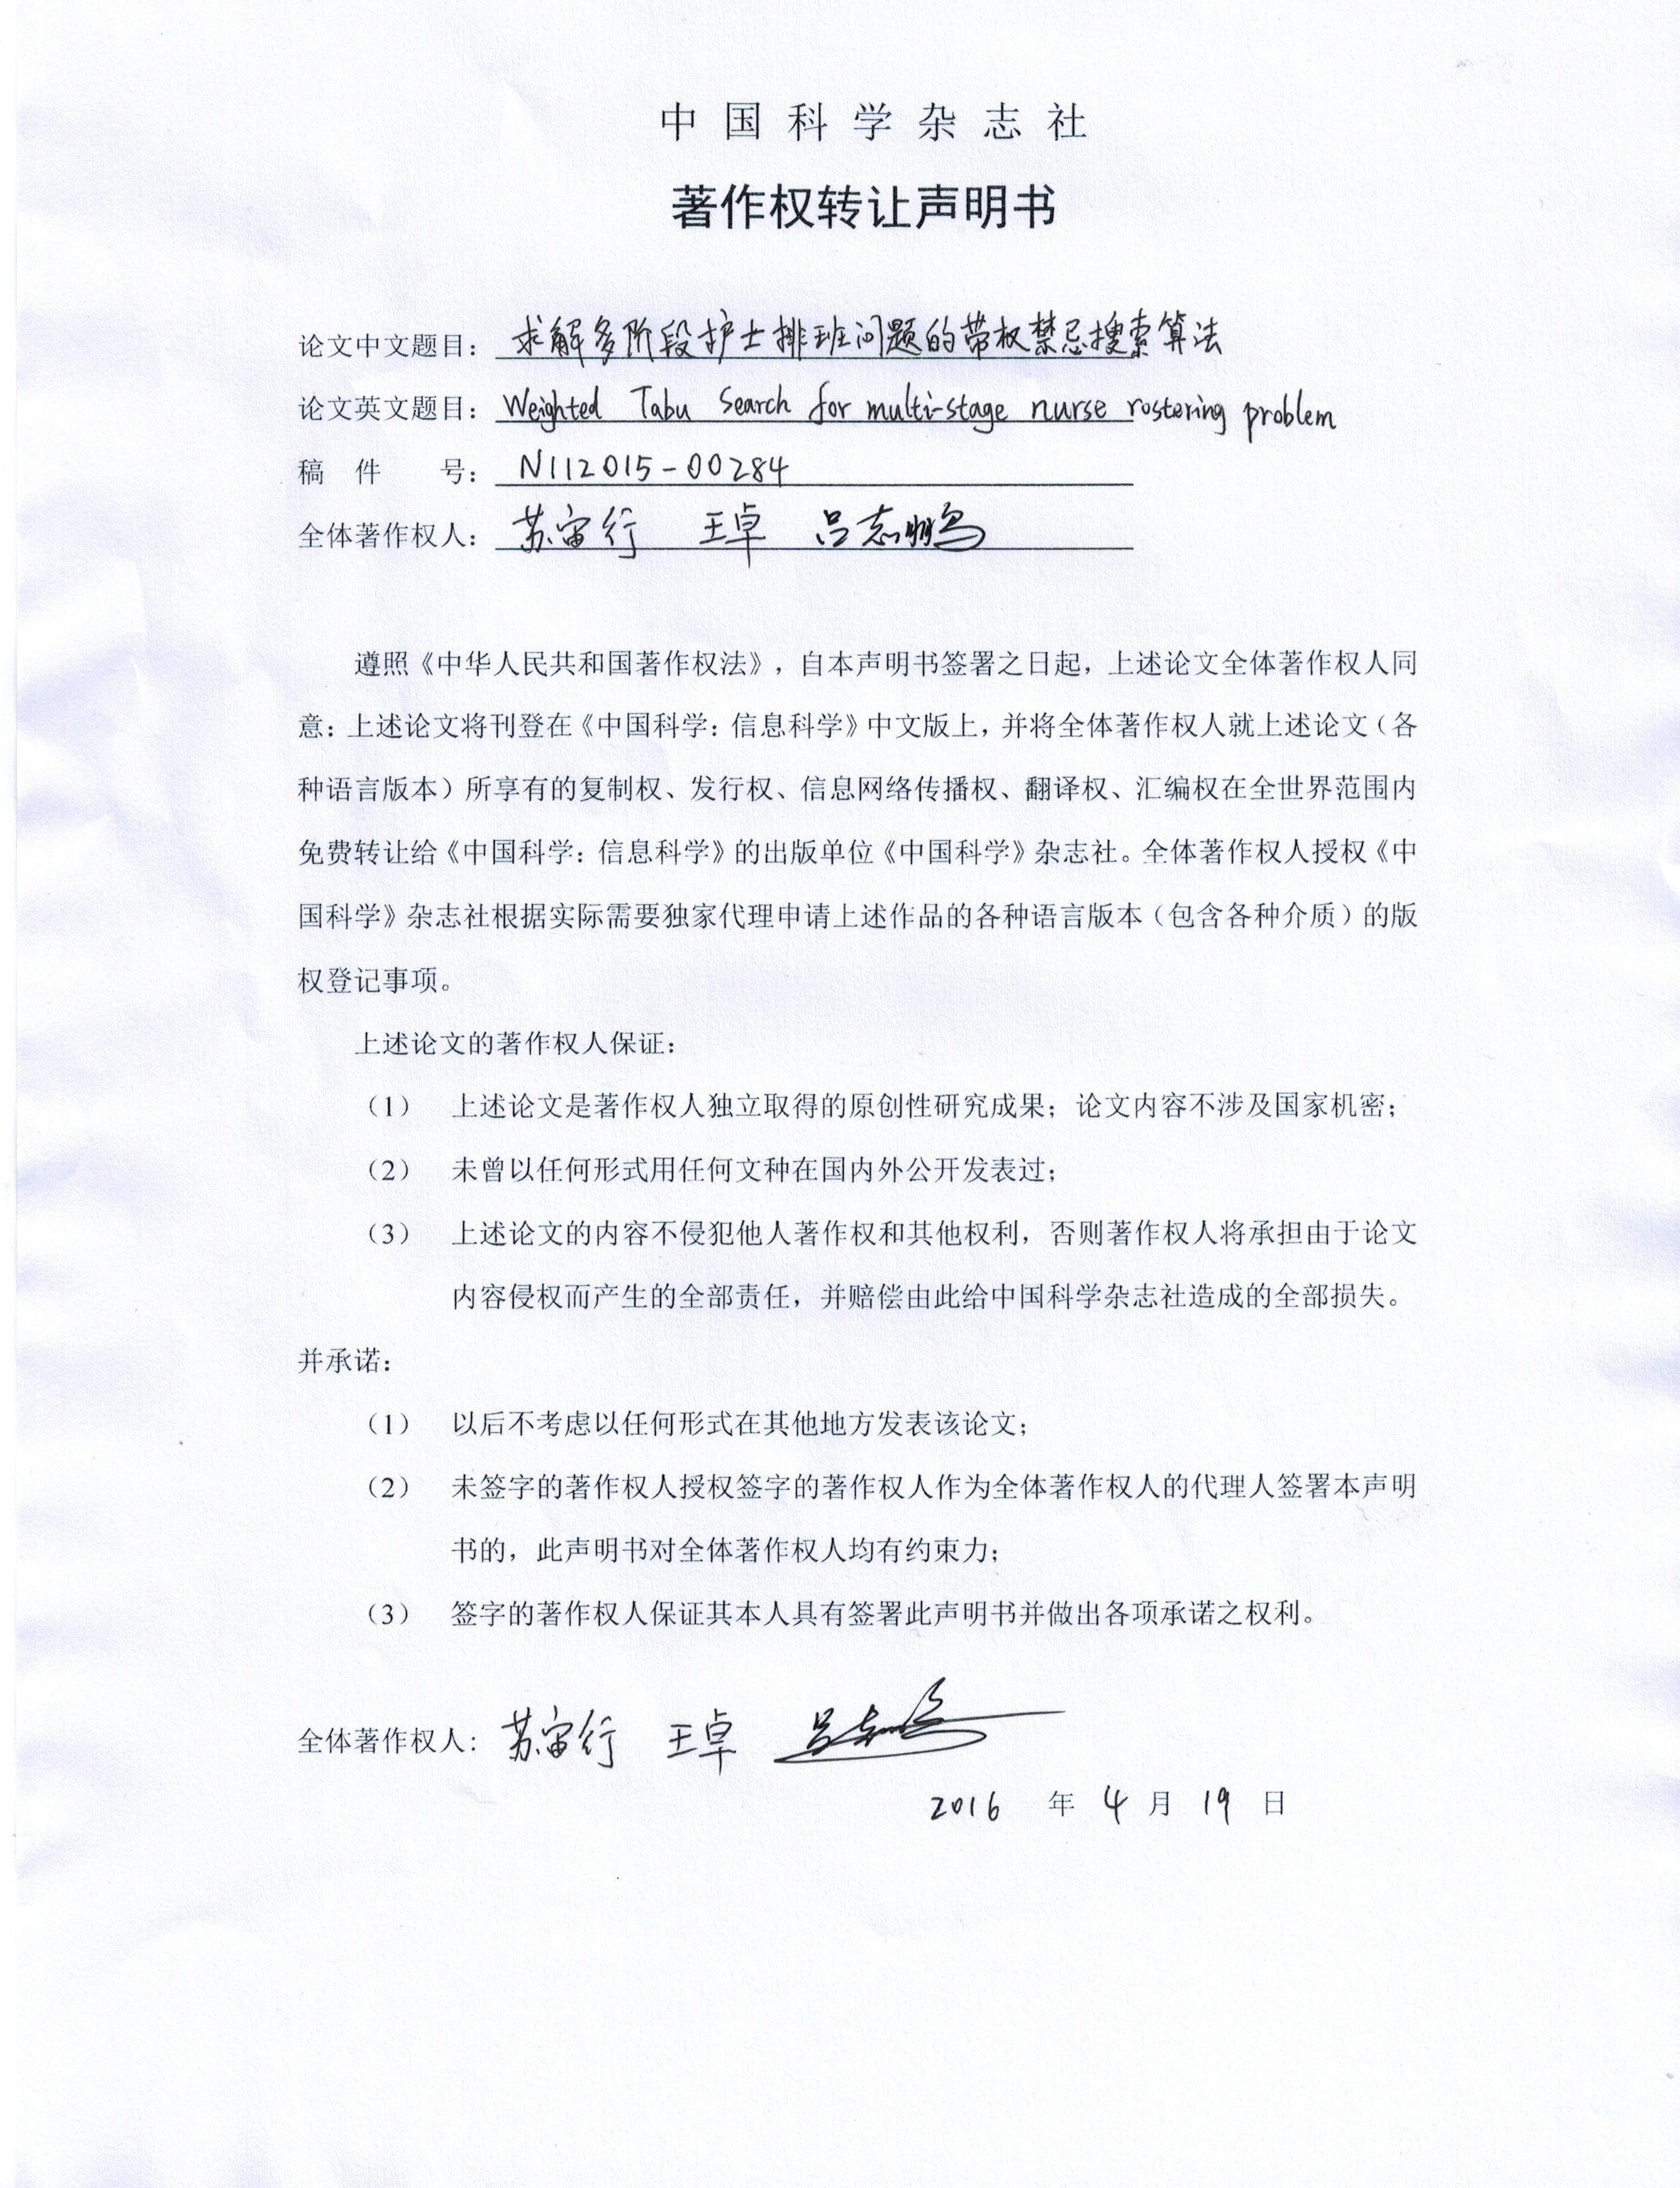 中国科学杂志社
著作权转让声明书
论文中文题目：求解多阶段护士排班问题的带权禁忌搜索算法
论文英文题目：Weighted Tabu Search for multi-stage nurse rostering problem
稿件号：N112015-00284
全体著作权人：苏宙行 王卓 吕志鹏
遵照《中华人民共和国著作权法》，自本声明书签署之日起，上述论文全体著作权人同
意：上述论文将刊登在《中国科学：信息科学》中文版上，并将全体著作权人就上述论文（各
种语言版本）所享有的复制权、发行权、信息网络传播权、翻译权、汇编权在全世界范围内
免费转让给《中国科学：信息科学》的出版单位《中国科学》杂志社。全体著作权人授权《中
国科学》杂志社根据实际需要独家代理申请上述作品的各种语言版本（包含各种介质）的版
权登记事项。
上述论文的著作权人保证：
（1） 上述论文是著作权人独立取得的原创性研究成果；论文内容不涉及国家机密；
（2） 未曾以任何形式用任何文种在国内外公开发表过；
（3） 上述论文的内容不侵犯他人著作权和其他权利，否则著作权人将承担由于论文
内容侵权而产生的全部责任，并赔偿由此给中国科学杂志社造成的全部损失。
并承诺：
（1） 以后不考虑以任何形式在其他地方发表该论文；
（2） 未签字的著作权人授权签字的著作权人作为全体著作权人的代理人签署本声明
书的，此声明书对全体著作权人均有约束力；
（3） 签字的著作权人保证其本人具有签署此声明书并做出各项承诺之权利。
全体著作权人：苏宙行 王卓 吕志鹏
2016 年 4 月 19 日